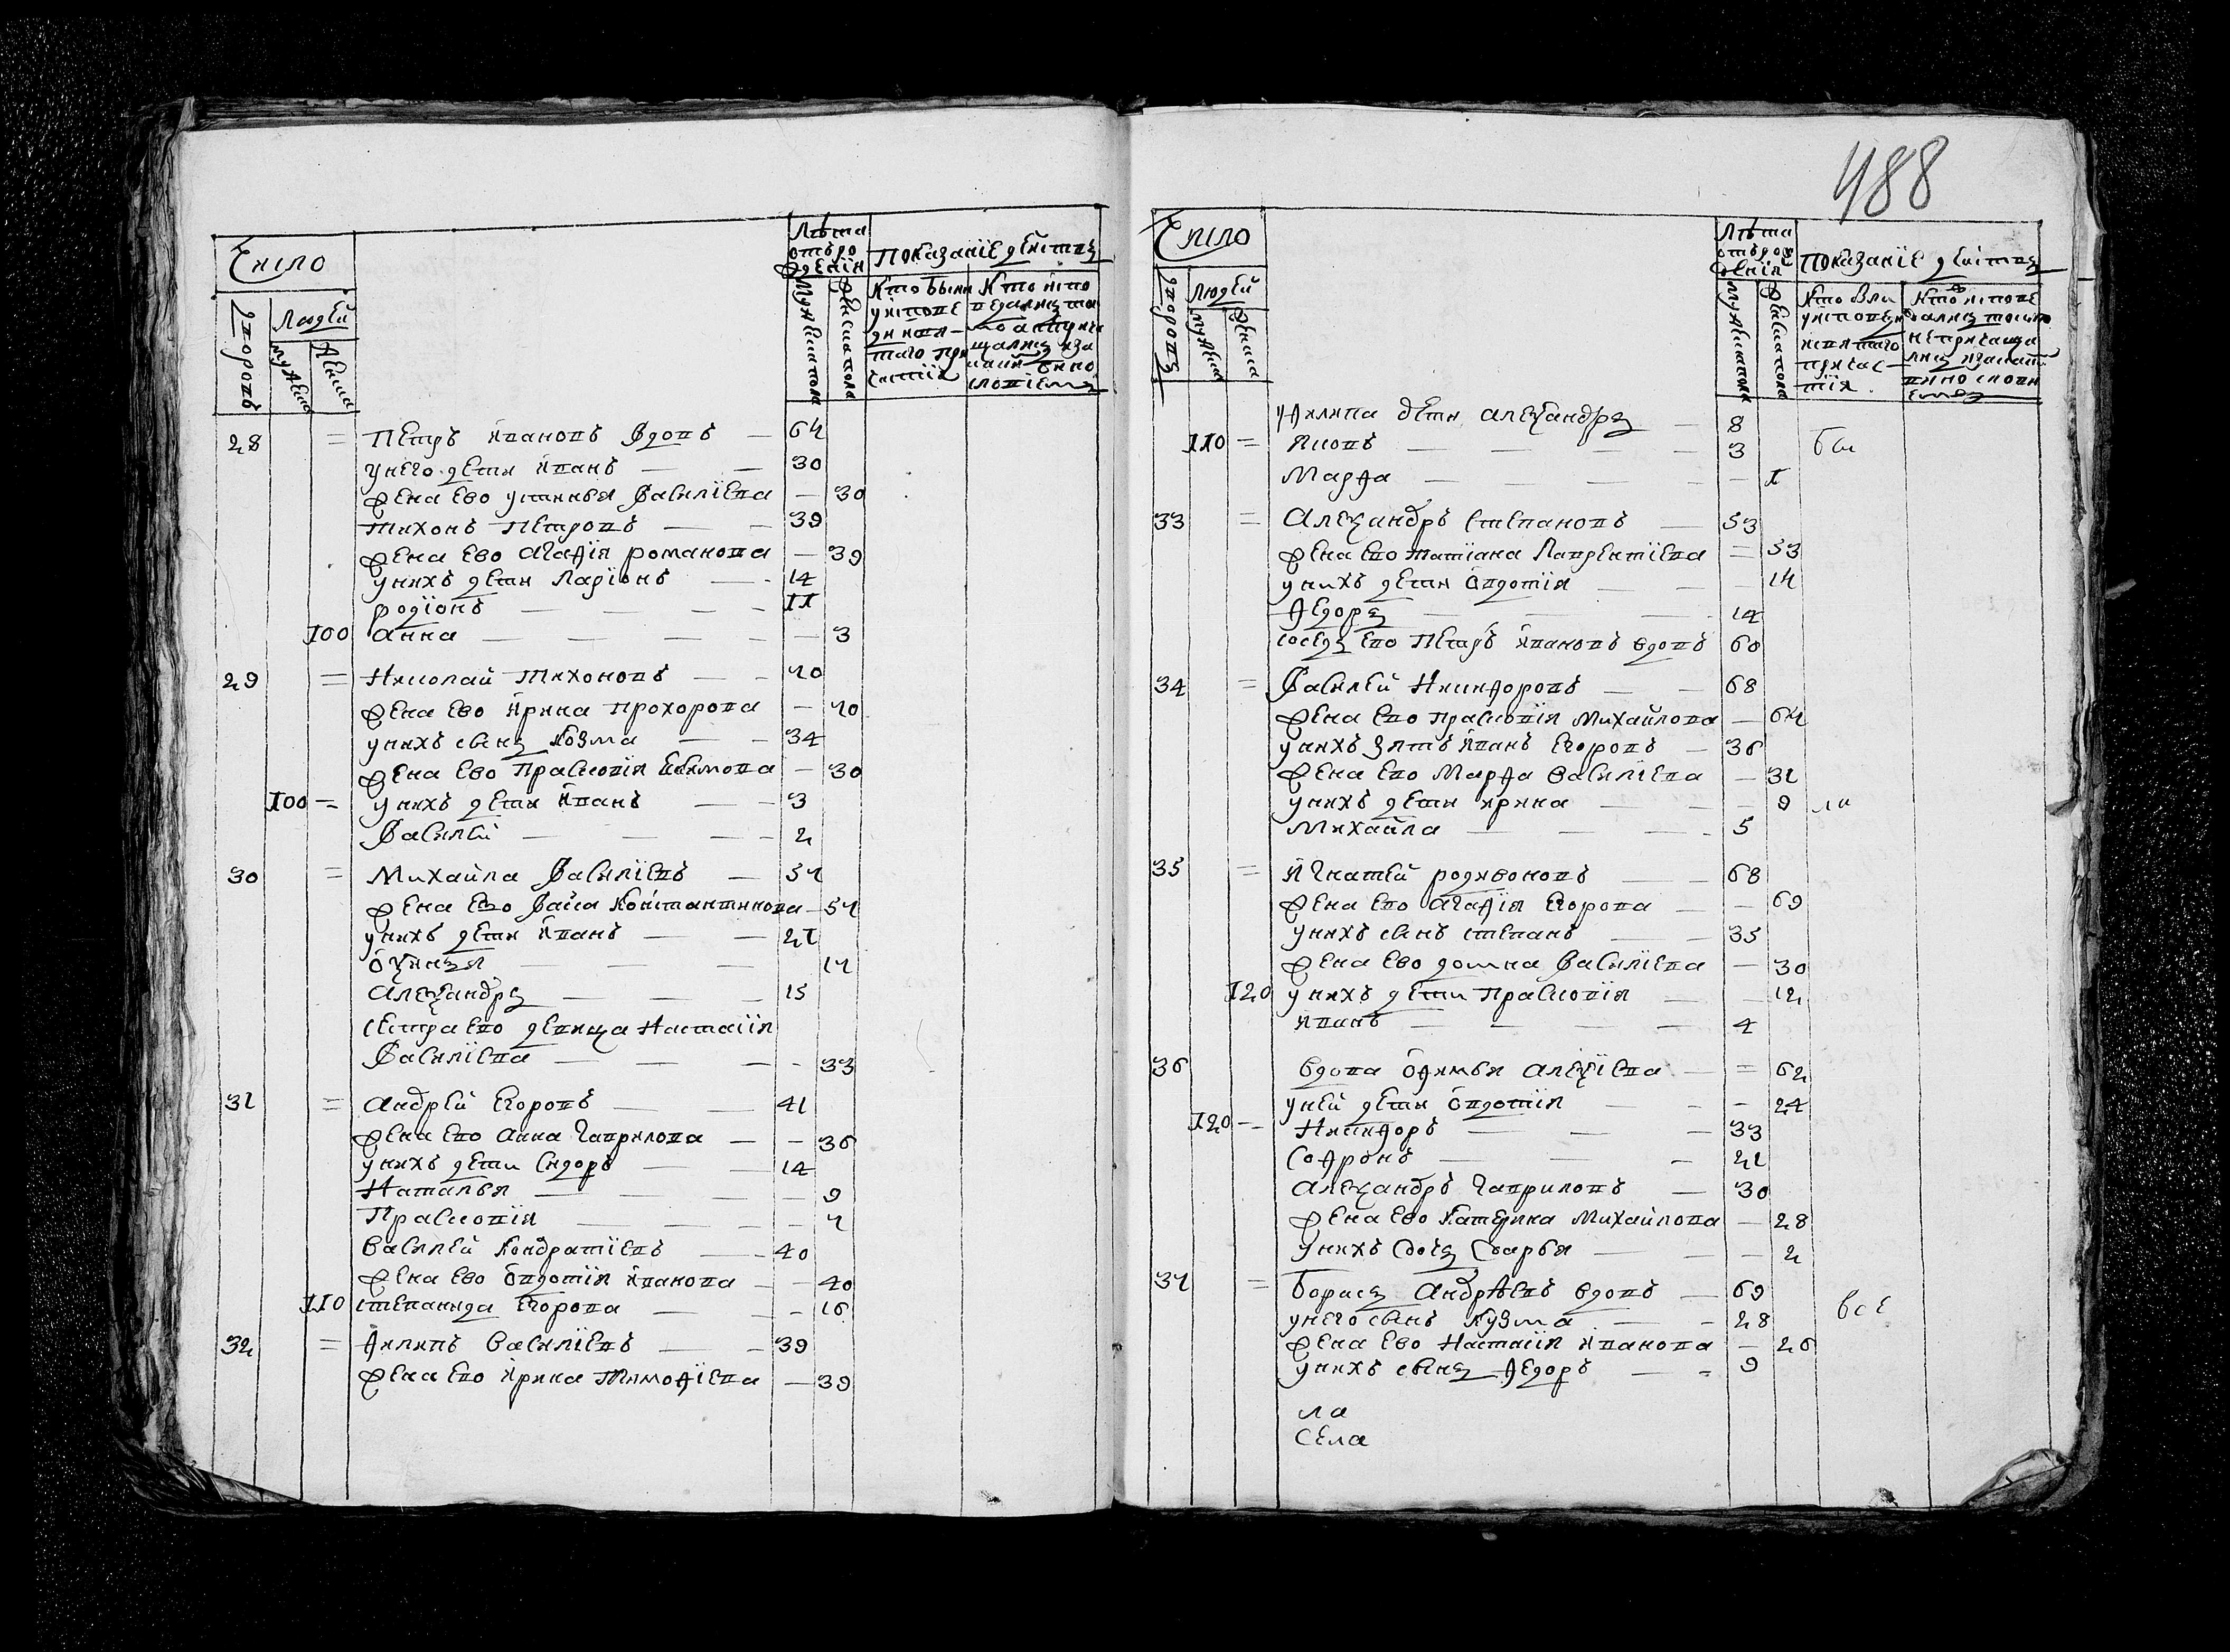 Число
дворовъ
Людей
мужеска
женска
Лѣта отъ рождения
Мужеска пола
Женска пола
Показаніе действъ
28 = Петръ Ивановъ вдовъ — 64
у него дети Иванъ — — 30
жена ево Устинья Василіева — 30
Тихонъ Петровъ — — 39
жена ево Агафія романова — 39
у нихъ дети Ларіонъ — — 14
родіонъ — — — — 11
100 анна — — — — — 3
29 = Николай Тихоновъ — — 40
жена ево Ирина Прохорова — 40
у нихъ сынъ Козма — — 34
жена ево Прасковія Екимова — 30
100 = у нихъ дети Иванъ — — 3
Василей — — — — 2
30 = Михайла Василіевъ — 54
жена ево Васса Константинова — 54
у нихъ дети Иванъ — — 21
— — — 14
Александръ — — — 15
сестра ево девица Настасія
Василіева — — — — 33
31 = андрей Егоровъ — — 41
жена ево анна гаврилова — — 36
у нихъ дети Сидоръ — — 14
Наталья — — — — 9
Прасковія — — — — 4
василей Кондратіевъ — — 40
жена ево Овдотія Иванова — — 40
110 степанида Егорова — — — 16
32 = Филипъ василіевъ — — 39
жена ево Ирина Тимофіева — 39
488
Число
дворовъ
Людей
мужеска
женска
Лѣта отъ рождения
Мужеска пола
Женска пола
Показаніе действъ
Филипа дети александръ — 8
110 = Яковъ — — — — 3 бы
Марфа — — — — — 1
33 = Александръ степановъ — 53
жена ево татіана Лаврентіева = 53
у нихъ дети Овдотія — — — 14
Федоръ — — — 14
соседъ ево Петръ Ивановъ вдовъ 60
34 = Василей Никифоровъ — — 68
жена ево прасковія Михайлова — 64
у нихъ зять Иванъ Егоровъ — 36
жена ево Марфа василіева — 31
у нихъ дети ирина — — — 9 ли
Михайла — — — — 5
35 = Игнатей родивоновъ — — 68
жена ево агафія Егорова — — 69
у нихъ сынъ степанъ — — 35
жена ево домна Василіева — 30
120 у нихъ дети Прасковія — — 12
Иванъ — — — — 4
36 вдова Офимья алексіева — = 62
у ней дети Овдотія — — — 24
120 = Никифоръ — — — 33
Софронъ — — — 21
александръ гавриловъ — 30
жена ево Катерина Михайлова — 28
у нихъ дочь Дарья — — — 2
37 = Борисъ андрѣевъ вдовъ — 69 все
у него сынъ Кузма — — 28
жена ево Настасія Иванова — 26
у нихъ сынъ Федоръ — = 9
ла
села